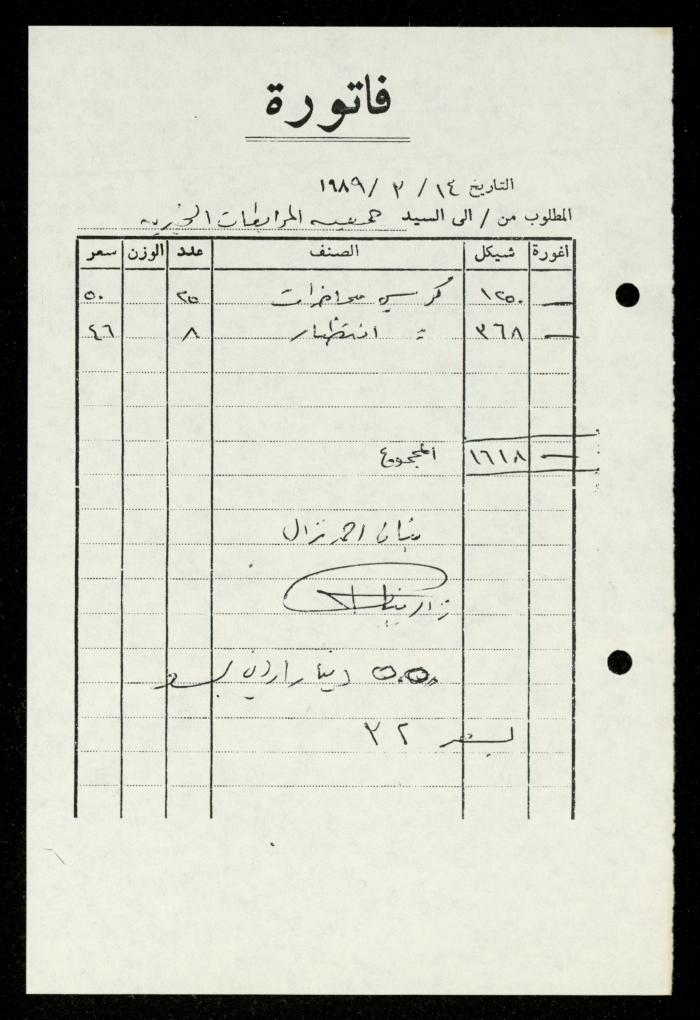 فاتورة
التاريخ ١٤ / ٢ / ١٩٨٩
المطلوب من / الى السيد جمعيه المرابطات الخيريه
اغورة شيكل الصنف عدد الوزن سعر
— ١٢٥٠ كرسي محاضرات ٢٥ ٥٠
— ٣٦٨ = انتظار ٨ ٤٦
— ١٦١٨ المجموع
احمد نزال
دينار اردني
بسعر ٣٢